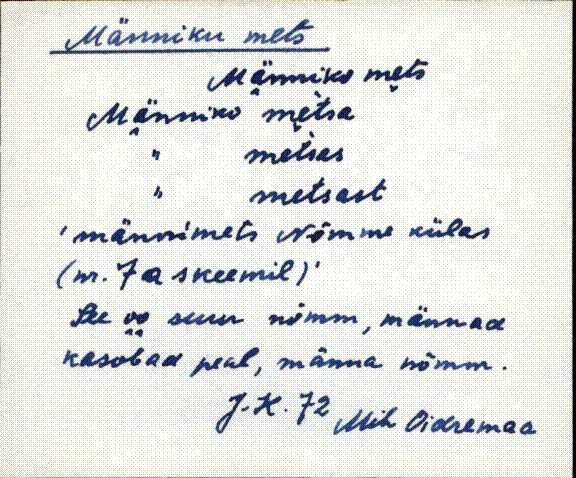 Männiku mets
Männiko mets
Männiko metsa
" metsas
" metsast
'männimets Nõmme külas
(nr. 7a skeemil)'
See oo suur nõmm, männad
kasobad peal, männa nõmm.
J.K. 72 Mih Oidremaa